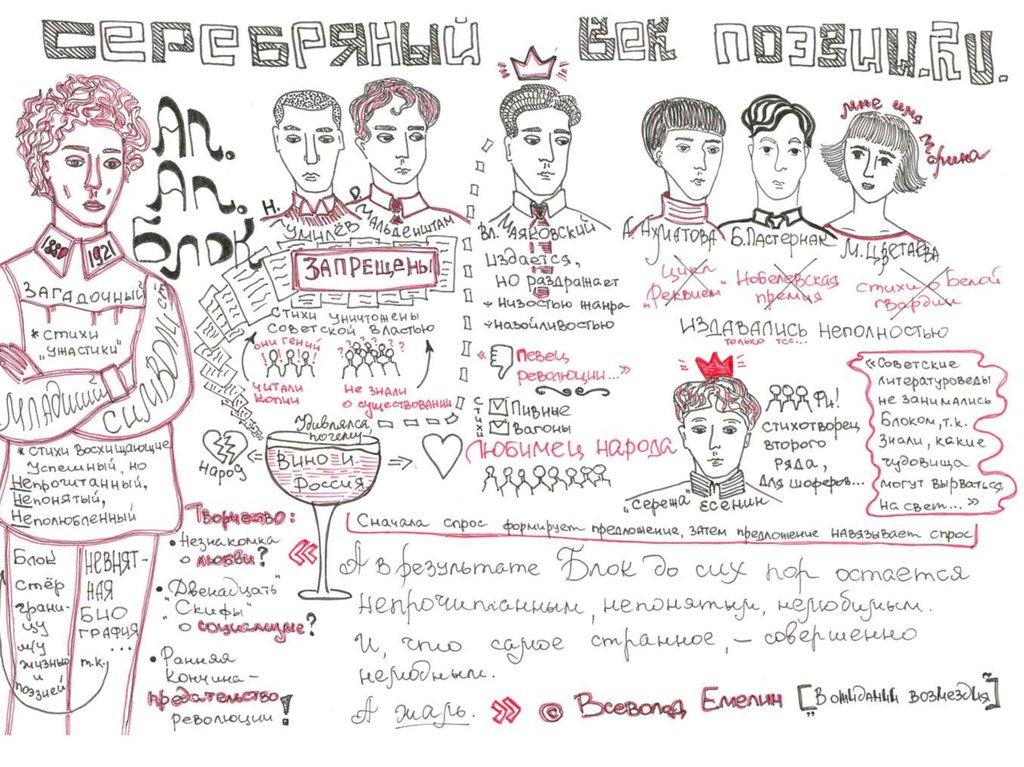 СЕРЕБРЯНЫЙ ВЕК ПОЭЗИИ.RU.
Ал.
Ал.
Блок
1880
1921
ЗАГАДОЧНЫЙ
*СТИХИ
„УЖАСТИКИ"
МЛАДШИЙ
СИМВОЛИСТ
*СТИХИ ВОСХИЩАЮЩИЕ
УСПЕШНЫЙ, НО
НЕПРОЧИТАННЫЙ,
НЕПОНЯТЫЙ,
НЕПОЛЮБЛЕННЫЙ
Блок
стёр
грани-
цу
м/у
жизнью
и
поэзией
НЕВНЯТ-
НАЯ
БИО
ГРАФИЯ
...
т.к.
Н. ГУМИЛЁВ
О. МАНДЕЛЬШТАМ
ЗАПРЕЩЕНЫ
СТИХИ УНИЧТОЖЕНЫ
СОВЕТСКОЙ ВЛАСТЬЮ
ОНИ ГЕНИИ
! ! ! !
? ? ? ? ? ?
ЧИТАЛИ
КОПИИ
НЕ ЗНАЛИ
О СУЩЕСТВОВАНИИ
Удивлялся,
почему
ВИНО И
РОССИЯ
НАРОД
Творчество:
• Незнакомка
о любви?
• „Двенадцать"
"Скифы"
о социализме?
• Ранняя
кончина –
предательство
революции!
Вл. МАЯКОВСКИЙ
ИЗДАЕТСЯ,
НО РАЗДРАЖАЕТ
НИЗОСТЬЮ ЖАНРА
НАЗОЙЛИВОСТЬЮ
« ПЕВЕЦ
РЕВОЛЮЦИИ...»
СТИХИ
ПИВНЫЕ
ВАГОНЫ
ЛЮБИМЕЦ НАРОДА
мне имя Марина
А. АХМАТОВА
Б. ПАСТЕРНАК
М. ЦВЕТАЕВА
ЦИКЛ
„РЕКВИЕМ"
НОБЕЛЕВСКАЯ
ПРЕМИЯ
СТИХИ О БЕЛОЙ
ГВАРДИИ
ИЗДАВАЛИСЬ НЕПОЛНОСТЬЮ
только
„СЕРЕЖА" ЕСЕНИН
ФИ!
СТИХОТВОРЕЦ
ВТОРОГО
РЯДА,
ДЛЯ ШОФЕРОВ...
«Советские
литературоведы
не занимались
Блоком, т.к.
знали, какие
чудовища
могут вырваться
на свет...»
Сначала спрос формирует предложение, затем предложение навязывает спрос
« А в результате Блок до сих пор остается
непрочитанным, непонятым, нелюбимым.
И, что самое странное, – совершенно
немодным.
А жаль. » © Всеволод Емелин [„В ожидании возмездия"]